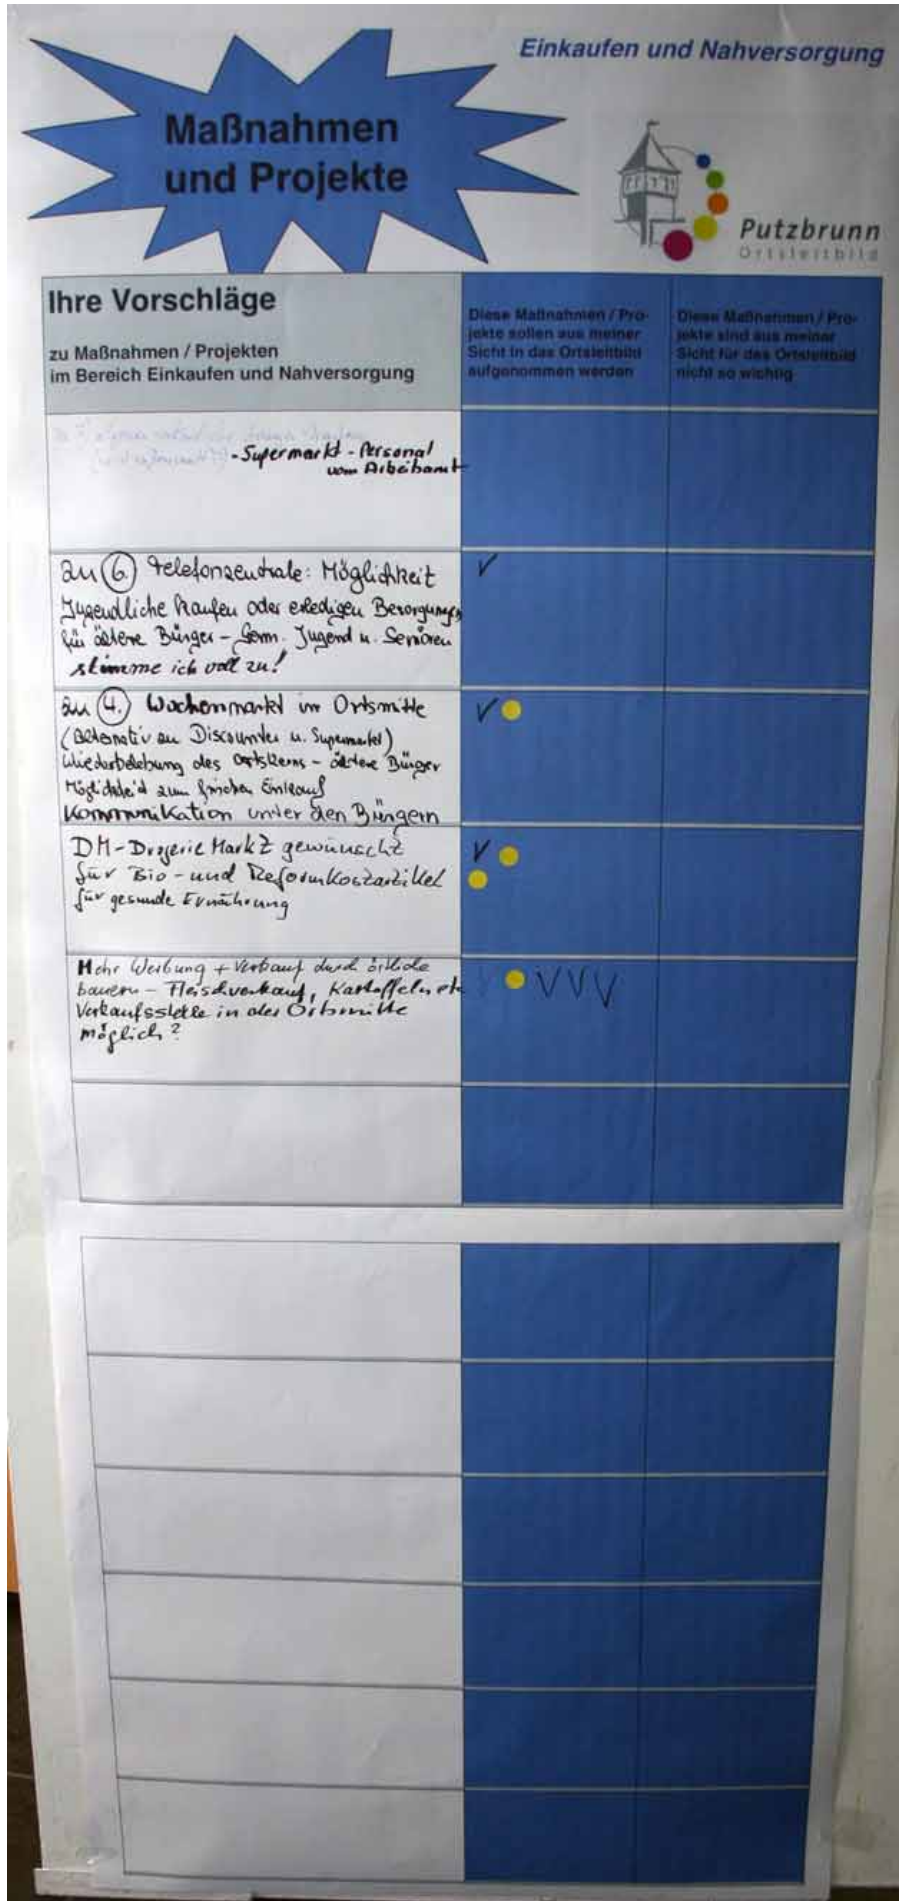 Einkaufen und Nahversorgung
Maßnahmen
und Projekte
Putzbrunn
Ortsleitbild
Ihre Vorschläge
zu Maßnahmen / Projekten
im Bereich Einkaufen und Nahversorgung
Diese Maßnahmen / Pro-
jekte sollen aus meiner
Sicht in das Ortsleitbild
aufgenommen werden
Diese Maßnahmen / Pro-
jekte sind aus meiner
Sicht für das Ortsleitbild
nicht so wichtig
- Supermarkt - Personal
vom Arbeitsamt
zu 6. Telefonzentrale: Möglichkeit
Jugendliche kaufen oder erledigen Besorgungen
für ältere Bürger - Gem. Jugend u. Senioren
stimme ich voll zu!
zu 4. Wochenmarkt in Ortsmitte
(Alternativ zu Discounter u. Supermarkt)
Wiederbelebung des Ortskerns - ältere Bürger
Möglichkeit zum frischen Einkauf
Kommunikation unter den Bürgern
DM-Drogerie Markt gewünscht
für Bio- und Reformkostartikel
für gesunde Ernährung
Mehr Werbung + Verkauf durch örtliche
bauern - Fleischverkauf, Kartoffeln etc
Verkaufsstelle in der Ortsmitte
möglich?